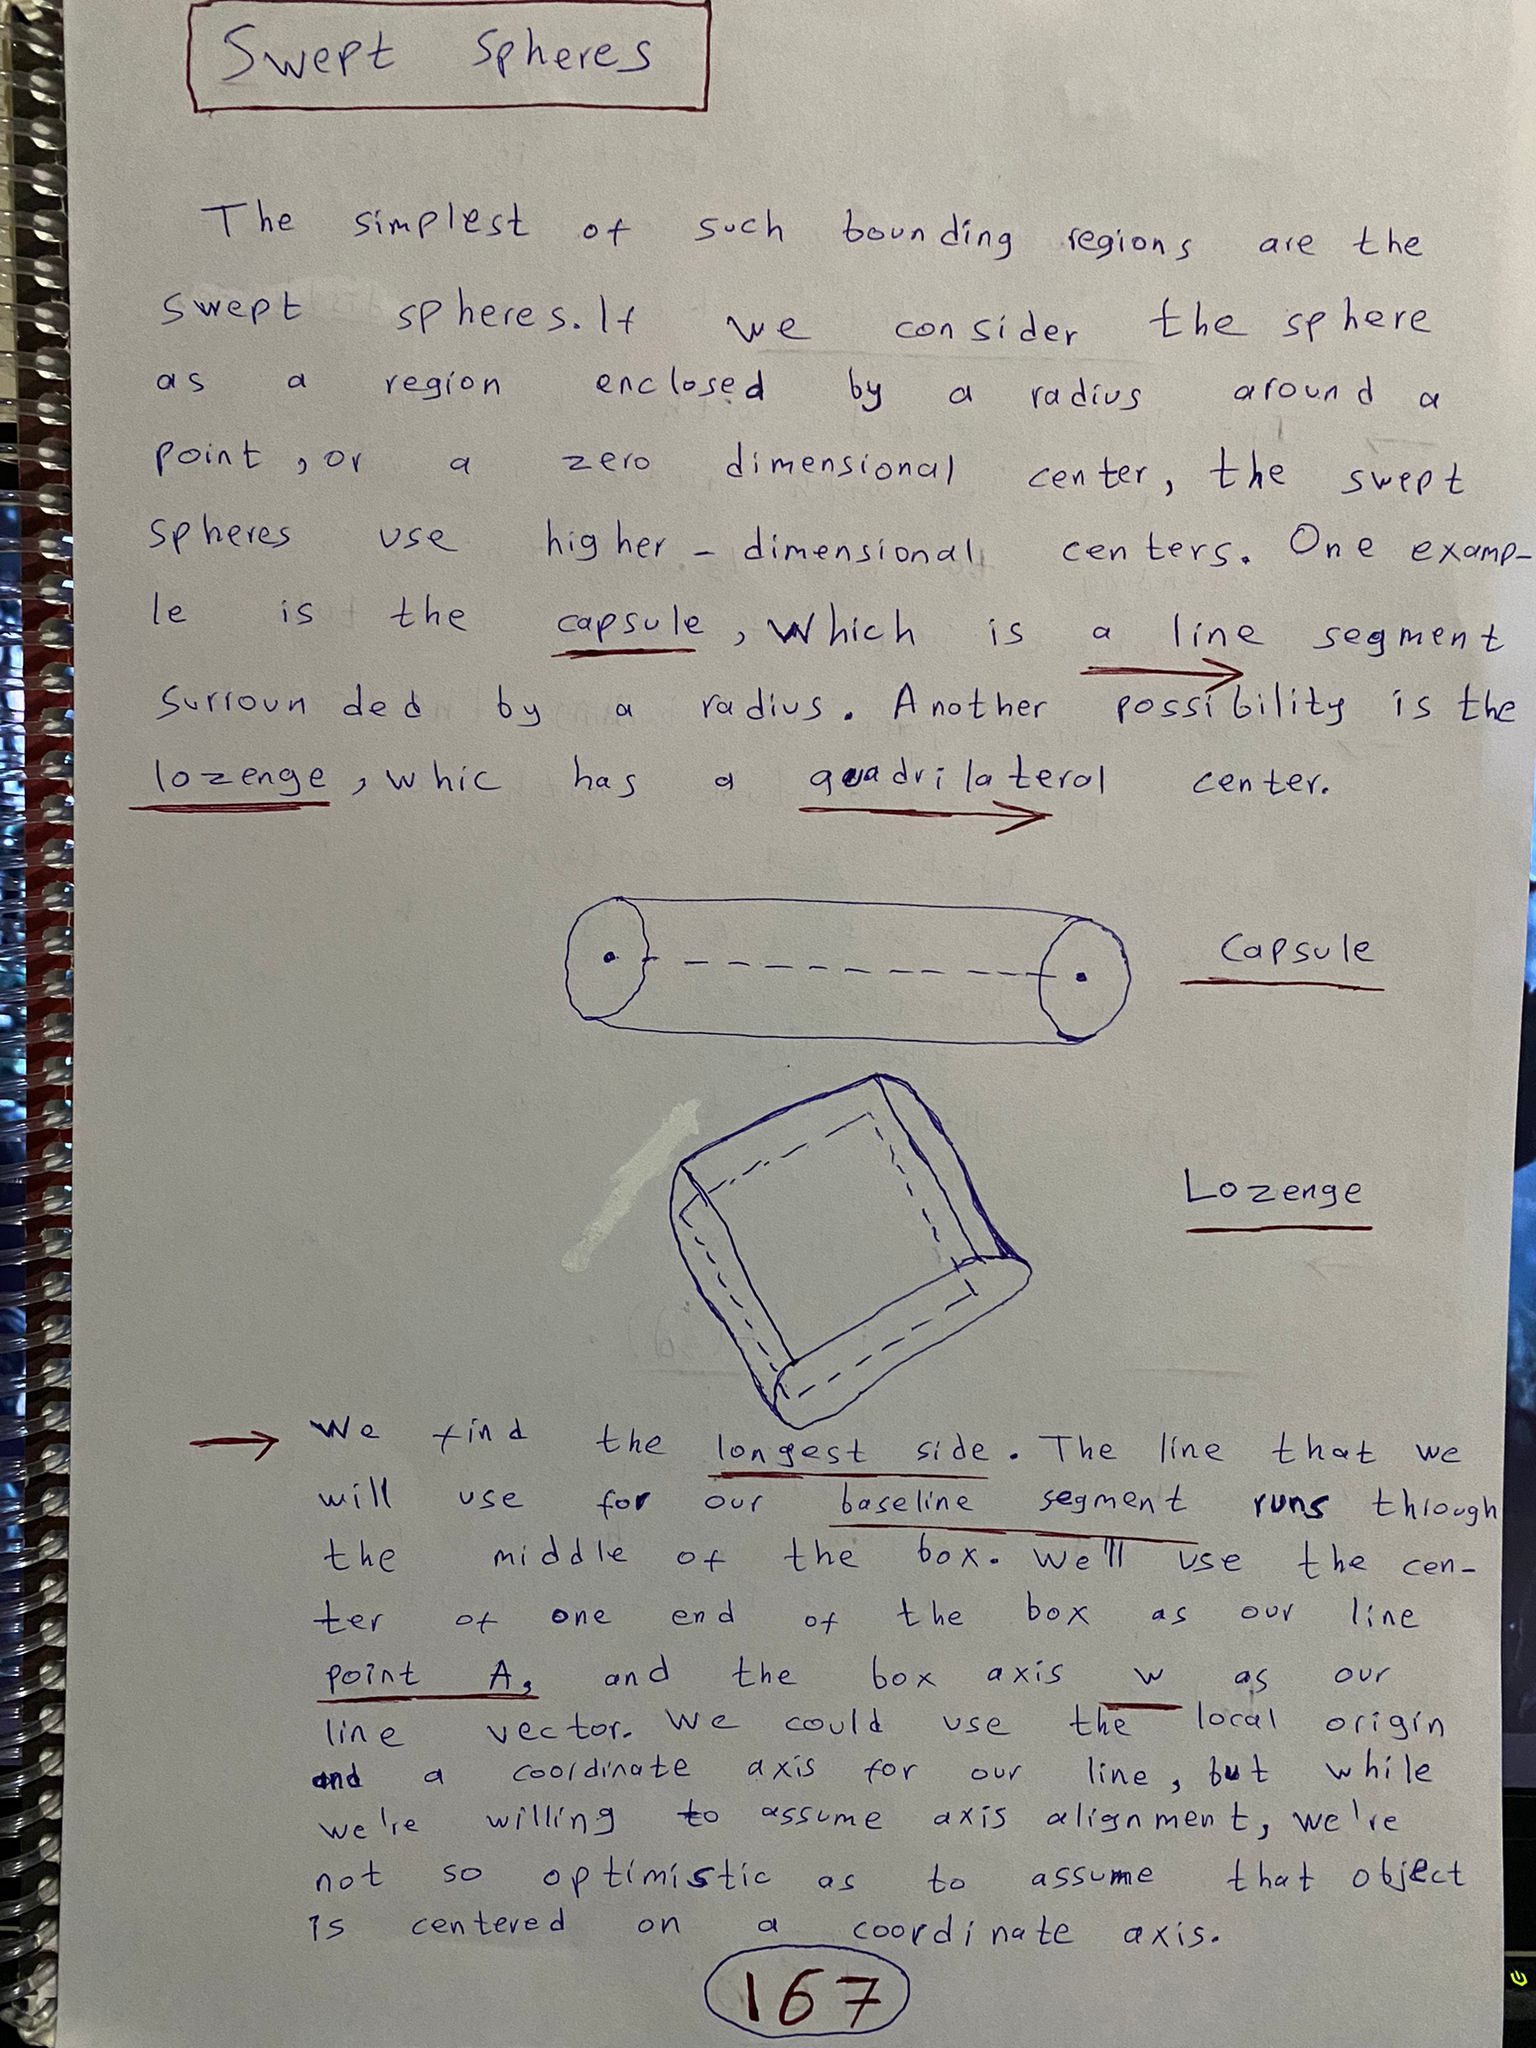 Swept Spheres
The simplest of such bounding regions are the
swept spheres. If we consider the sphere
as a region enclosed by a radius around a
point, or a zero dimensional center, the swept
spheres use higher-dimensional centers. One examp-
le is the capsule, which is a line segment
surrounded by a radius. Another possibility is the
lozenge, whic has a quadrilateral center.
Capsule
Lozenge
We find the longest side. The line that we
will use for our baseline segment runs through
the middle of the box. We'll use the cen-
ter of one end of the box as our line
point A, and the box axis w as our
line vector. We could use the local origin
and a coordinate axis for our line, but while
we're willing to assume axis alignment, we're
not so optimistic as to assume that object
is centered on a coordinate axis.
167